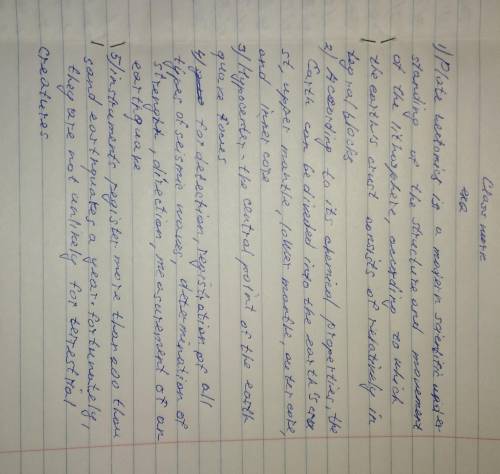 Class work
1) Plate tectonics is a modern scientific under
standing of the structure and movement
of the lithosphere, according to which
the earth's crust consists of relatively in
tegral blocks
2) According to its chemical properties, the
Earth can be divided into the earth's cru
st, upper mantle, lower mantle, outer core,
and inner core
3) Hypocenter - the central point of the earth
quake focus
4) for detection, registration of all
types of seismic waves, determination of
strenght, direction, measurement of an
earthquake
5) instruments register more than 200 thou
sand earthquates a year. fortunately,
they are not unlikely for terrestrial
creatures